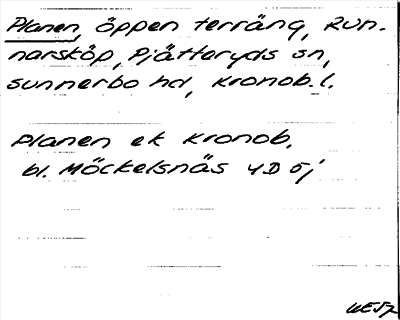 Planen, öppen terräng, Run-
narsköp, Pjätteryds sn,
Sunnerbo hd, Kronob. l.
Planen ek Kronob.
bl. Möckelsnäs 4D 5j